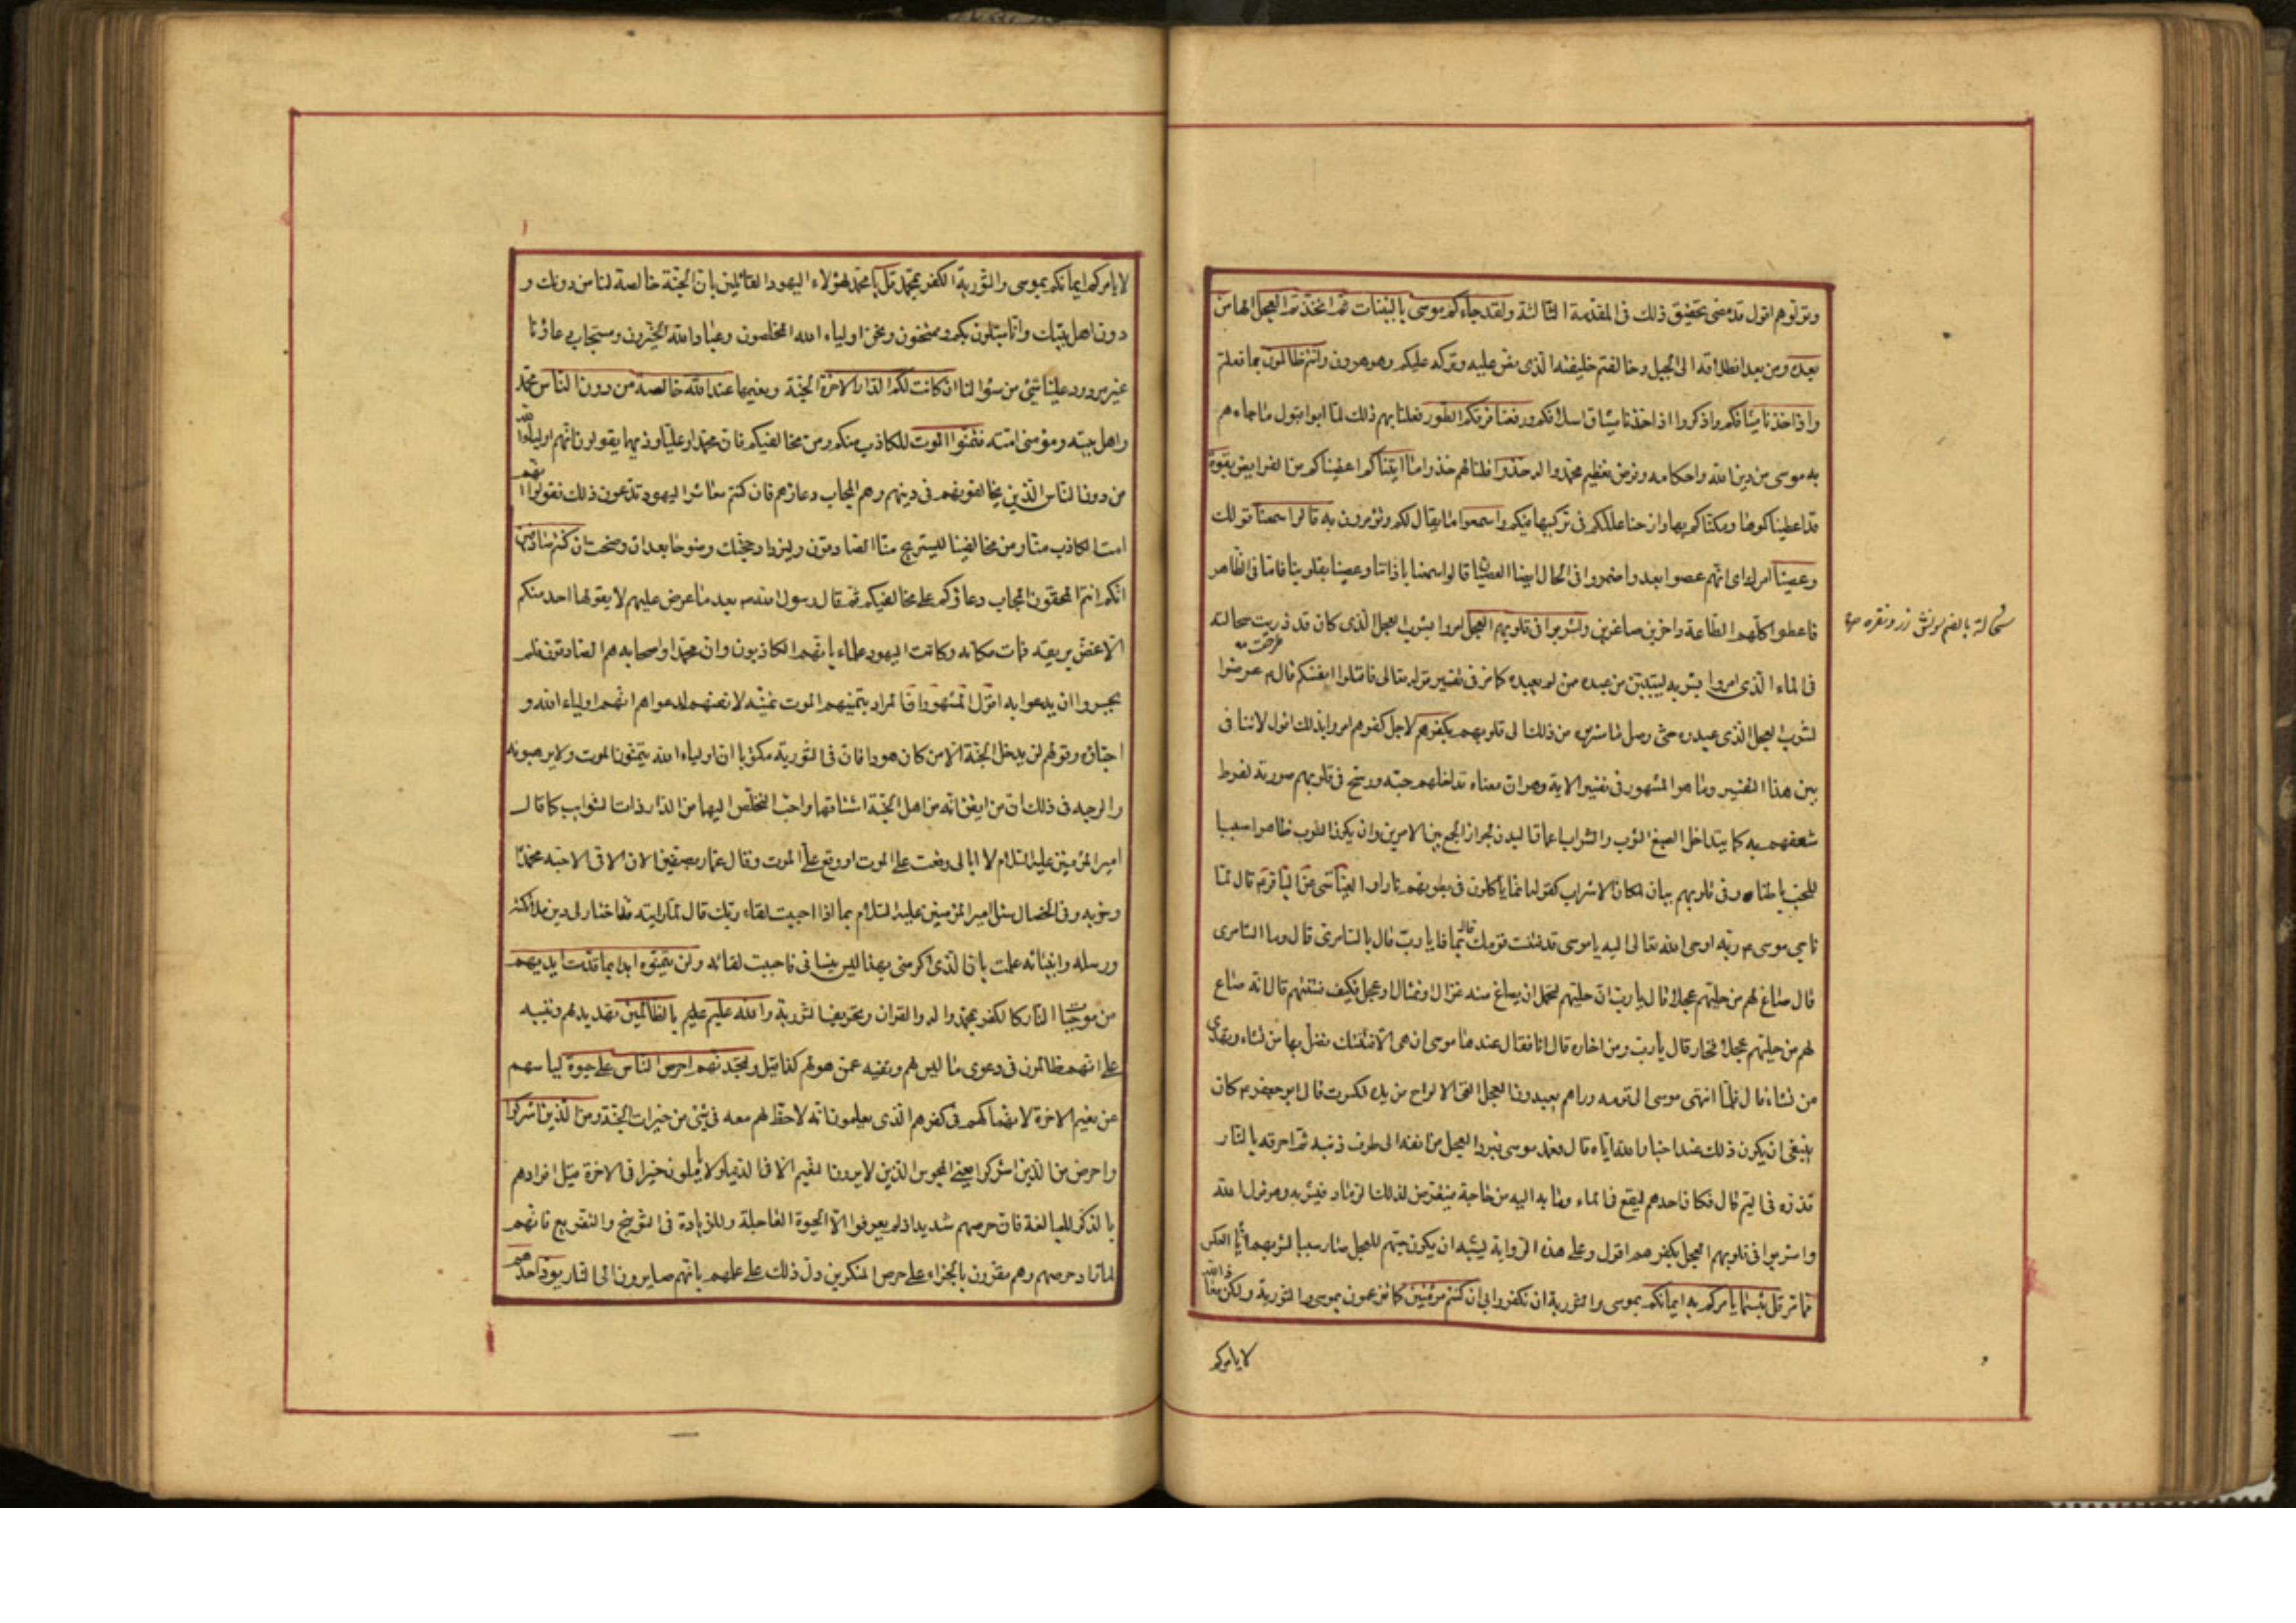 وتزلوهم اقول قد مضى تحقيق ذلك فى المقدمة الثالثة ولقد جاءكم موسى بالبينات ثم اتخذتم العجل الها من
بعده ومن بعد انطلاقه الى الجبل وخالفتم خليفته الذى نص عليه وتركه عليكم وهو هرون وانتم ظالمون بما فعلتم
واذ اخذنا ميثاقكم واذكروا اذ اخذنا ميثاق اسلافكم ورفعنا فوقكم الطور فعلنا بهم ذلك لما ابوا قبول ما جاءهم
به موسى من دين الله واحكامه وفرض تعظيم محمد واله خذوا قلنا لهم خذوا ما اتيناكم اعطيناكم من الفرايض بقوة
قد اعطيناكموها ومكناكم بها وازحنا عللكم فى تركيبها فيكم واسمعوا ما يقال لكم وتؤمرون به قالوا سمعنا قولك
وعصينا امرك اى انهم عصوا بعد واضمروا فى الحال ايضا العصيان قالوا سمعنا باذاننا وعصينا بقلوبنا فاما فى الظاهر
فاعطوا كلهم الطاعة داخرين صاغرين واشربوا فى قلوبهم العجل امروا بشرب العجل الذى كان قد ذريت سحالته
فى الماء الذى امروا بشربه ليتبين من عبده ممن لم يعبده كما مر فى تفسير قوله تعالى فاقتلوا انفسكم قال عرضوا
لشرب العجل الذى عبدوه حتى وصل ما شربوه من ذلك الى قلوبهم بكفرهم لاجل كفرهم امروا بذلك اقول لا تنافى
بين هذا التفسير وما هو المشهور فى تفسير الاية وهو ان معناه تداخلهم حبه ورسخ فى قلوبهم صورته لفرط
شعفهم به كما يتداخل الصبغ الثوب والشراب اعماق البدن لجواز الجمع بين الامرين وان يكون الشرب ظاهرا سببا
للحب باطنا وفى قلوبهم بيان لمكان الاشراب كقوله انما ياكلون فى بطونهم نارا والعياشى عن الباقر قال لما
ناجى موسى ربه اوحى الله تعالى اليه يا موسى قد فتنت قومك قال بماذا يا رب قال بالسامرى قال وما السامرى
قال صاغ لهم من حليهم عجلا قال يا رب ان حليهم لتحتمل ان يصاغ منه غزال او تمثال او عجل فكيف فتنتهم قال انه صاغ
لهم من حليهم عجلا فخار قال يا رب ومن اخاره قال انا فقال عندها موسى ان هى الا فتنتك تضل بها من تشاء وتهدى
من تشاء قال فلما انتهى موسى الى قومه وراهم يعبدون العجل القى الالواح من يده فكسرت قال ابو جعفر كان
ينبغى ان يكون ذلك عند اخبار الله اياه قال فعمد موسى فبرد العجل من انفه الى طرف ذنبه ثم احرقه بالنار
فذره فى اليم قال فكان احدهم ليقع فى الماء وما به اليه من حاجة فيتعرض لذلك الرماد فيشربه وهو قول الله
واشربوا فى قلوبهم العجل بكفرهم اقول وعلى هذه الرواية يشبه ان يكون حبهم للعجل صار سببا لشربهم اياه بالعكس
مما مر قل بئسما يامركم به ايمانكم بموسى والتورية ان تكفروا بى ان كنتم مؤمنين كما تزعمون بموسى والتورية ولكن معاذ الله
لا يامركم
سحالة بالضم سونش زر ونقره
لا يامركم ايمانكم بموسى والتورية الكفر بمحمد قل يا محمد لهؤلاء اليهود القائلين بان الجنة خالصة لنا من دونك و
دون اهل بيتك وانا مبتلون بكم وممتحنون ونحن اولياء الله المخلصون وعباد الله الخيرون ومستجاب دعاؤنا
غير مردود علينا شئ من سؤالنا ان كانت لكم الدار الاخرة الجنة ونعيمها عند الله خالصة من دون الناس محمد
واهل بيته ومؤمنى امته فتمنوا الموت للكاذب منكم ومن مخالفيكم فان محمدا وعليا وذويهما يقولون انهم اولياء الله
من دون الناس الذين يخالفونهم فى دينهم وهم المجاب دعاؤهم فان كنتم معاشر اليهود تدعون ذلك فقولوا اللهم
امت الكاذب منا ومن مخالفينا ليستريح منا الصادقون وليزداد حجتك وضوحا بعد ان وضحت ان كنتم صادقين
انكم انتم المحقون المجاب دعاؤكم على مخالفيكم ثم قال رسول الله بعد ما عرض عليهم لا يقولها احد منكم
الا غص بريقه فمات مكانه وكانت اليهود علماء بانهم الكاذبون وان محمدا واصحابه هم الصادقون فلم
يجسروا ان يدعوا به اقول المشهور ان المراد بتمنيهم الموت تمنيه لانفسهم لدعواهم انهم اولياء الله و
احباؤه وقولهم لن يدخل الجنة الا من كان هودا فان فى التورية مكتوبا ان اولياء الله يتمنون الموت ولا يرهبونه
والوجه فى ذلك ان من ايقن انه من اهل الجنة اشتاقها واحب التخلص اليها من الدار ذات الشوائب كما قال
امير المؤمنين عليه السلام لا ابالى وقعت على الموت او وقع على الموت وقال عمار بصفين الان الاقى الاحبه محمدا
وحزبه وفى الخصال سئل امير المؤمنين عليه السلام بماذا احببت لقاء ربك قال لما رايته قد اختار لى دين ملائكته
ورسله وانبيائه علمت بان الذى اكرمنى بهذا ليس ينسانى فاحببت لقائه ولن يتمنوه ابدا بما قدمت ايديهم
من موجبات النار كالكفر بمحمد واله والقران وتحريف التورية والله عليم بالظالمين تهديد لهم وتنبيه
على انهم ظالمون فى دعوى ما ليس لهم ونفيه عمن هو لهم كذا قيل ولتجدنهم احرص الناس على حيوة ليأسهم
عن نعيم الاخرة لانهماكهم فى كفرهم الذى يعلمون انه لا حظ لهم معه فى شئ من خيرات الجنة ومن الذين اشركوا
واحرص من الذين اشركوا يعنى المجوس الذين لا يرون النعيم الا فى الدنيا ولا ياملون خيرا فى الاخرة قيل افرادهم
بالذكر للمبالغة فان حرصهم شديد اذ لم يعرفوا الا الحيوة العاجلة وللزيادة فى التوبيخ والتقريع فانهم
لما زاد حرصهم وهم مقرون بالجزاء على حرص المنكرين دل ذلك على علمهم بانهم صايرون الى النار يود احدهم